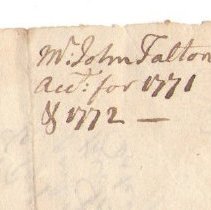 Mr: John Talton
Acct: for 1771
& 1772 —